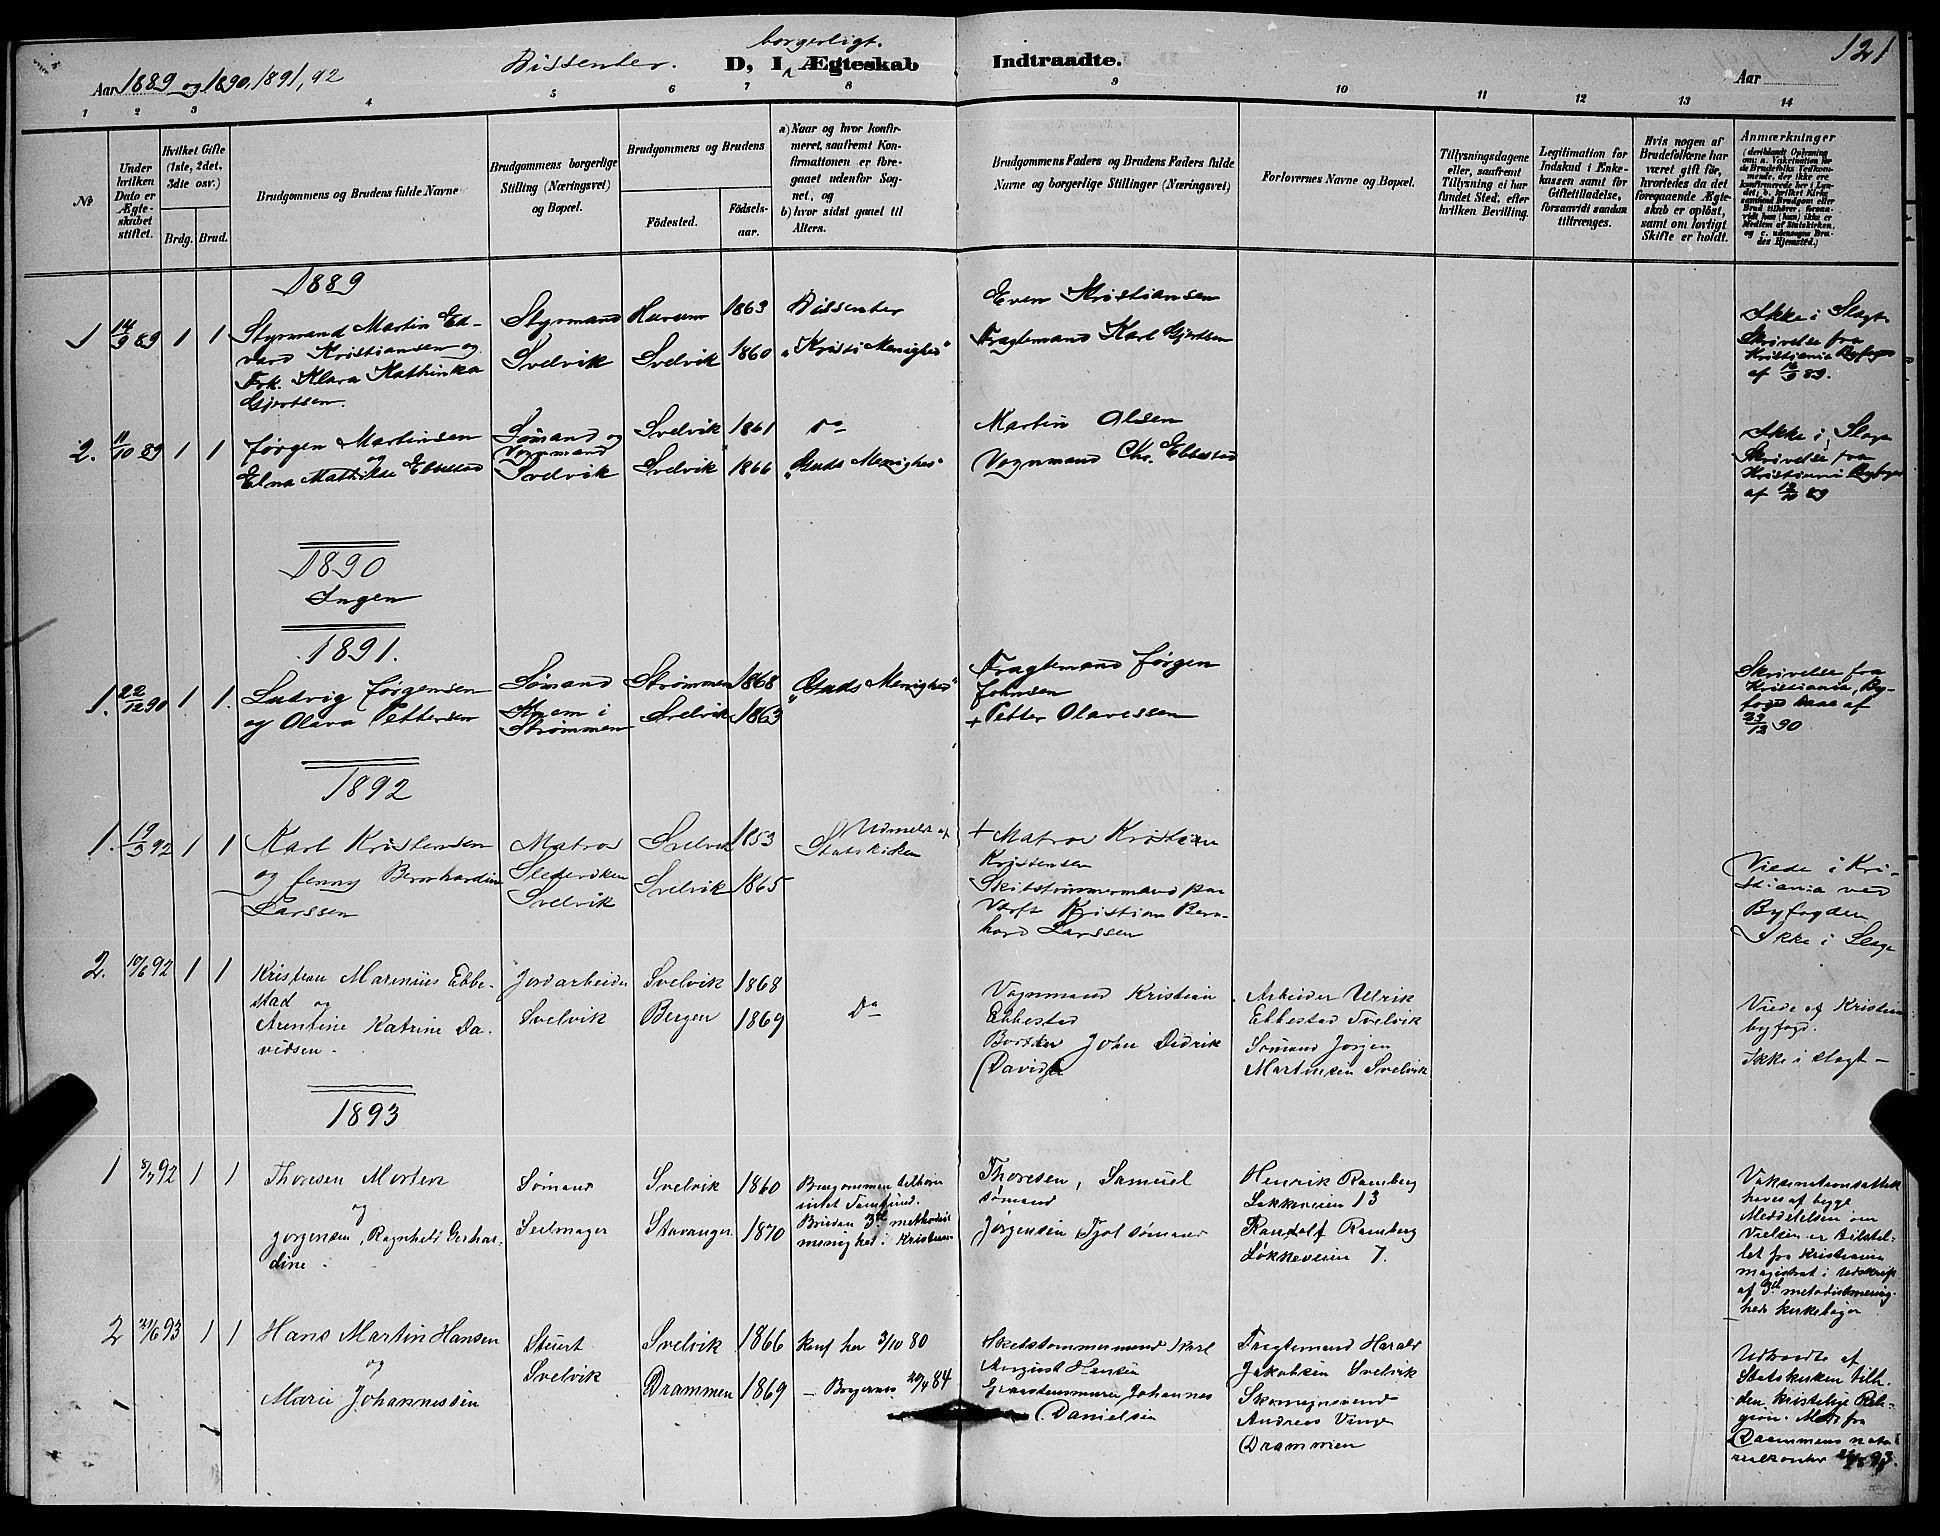 Aar 1889 og 1890, 1891, 92
Dissenter.
borgerligt.
D, I Ægteskab Indtraadte.
Aar
121
1 2 3 4 5 6 7 8 9 10 11 12 13 14
No
Under hvilken Dato er Ægteskabet stiftet.
Hvilket Gifte (1ste, 2det. 3die osv.)
Brdg. Brud.
Brudgommens og Brudens fulde Navne
Brudgommens borgerlige Stilling (Næringsvei) og Bopæl.
Brudgommens og Brudens
Fødested.
Fødselsaar.
a) Naar og hvor konfirmeret, saafremt Konfirmationen er foregaaet udenfor Sognet, og
b) hvor sidst gaaet til Alters.
Brudgommens Faders og Brudens Faders fulde Navne og borgerlige Stillinger (Næringsvei)
Forlovernes Navne og Bopæl.
Tillysningsdagene eller, saafremt Tillysning ei har fundet Sted, efter hvilken Bevilling.
Legitimation for Indskud i Enkekassen samt før Giftetilladelse, forsaavidt saadan tiltrænges.
Hvis nogen af Brudefolkene har været gift før, hvorledes da det foregaaende Ægteskab er opløst, samt om lovligt Skifte er holdt.
Anmærkninger
1889
1 14/9 89 1 1
Styrmand Martin Edvard Kristiansen og
Frk. Klara Kathinka
Gjertsen.
Styrmand
Svelvik
Hurum 1863
Svelvik 1860
Dissenter
"Kristi Menighed"
Even Kristiansen
Fragtemand Karl Gjertsen
Ikke i Slægt
Skrivelse fra
Kristiania Byfoged
af 89.
2. 11/10 89 1 1
Jørgen Martinsen
og
Elna Mathilde Ebbestad
Sømand og
Vognmand
Svelvik
Svelvik 1861
Svelvik 1866
Do
"Guds Menighed"
Martin Olsen
Vognmand Chr. Ebbestad
Ikke i Slægt
Skrivelse fra
Kristiania Byfoged
af 89
1890
Ingen
1891.
1. 22/12 90 1 1.
Ludvig Jørgensen
og Olava Pettersen
Sømand
Knem i
Strømmen
Strømmen 1868
Svelvik 1863
"Guds Menighed"
Fragtemand Jørgen
Johnsen
+ Petter Olavessen
Skrivelse fra
Kristiania Byfoged
af
90
1892
1. 19/3 92 1 1
Karl Kristensen
og Jenny Bernhardine
Larssen
Matros
Slederviken
Svelvik
Svelvik 1853
Svelvik 1865
Udmeldt af
Statskirken
+ Matros Kristian
Kristensen
Skibstømmermand paa
Værft Kristian Bernhard Larssen
Viede i Kristiania ved
Byfogden
Ikke i Slægt
2. 10/6 92 1 1
Kristian Marinius Ebbestad
og
Arentine Katrine Davidsen.
Jordarbeider
Svelvik
Svelvik 1868
Bergen 1869
Do
Vognmand Kristian
Ebbestad
John Didrik
Davidsen
Arbeider Ulrik
Ebbestad Svelvik
Sømand Jørgen
Martinsen Svelvik
Viede af Kristiania
byfogd.
Ikke i slægt
1893
1 8/7 92 1 1
Thoresen Morten
og
Jørgensen, Ragnhild Gerhardine.
Sømand
Seilmager
Svelvik 1860
Stavanger 1870
Brudgommen tilhører
intet Samfund.
Bruden 3die methodistmenighed i Kristiania
Thoresen, Samuel
sømand
Jørgensen Tjøl sømand
Henrik Ramberg
Løkkeveien 13
Randolf Ramberg
Løkkeveien 7.
Vaksinationsattest
haves af begge
Meddelelsen om
Vielsen er tilstillet fra Kristiania
magistrat i Udskrift
af 3die metodistmenigheds kirkebøger
2 21/6 93 1 1
Hans Martin Hansen
og
Marie Johannessen
Stuert
Svelvik
Svelvik 1866
Drammen 1869
konf her 3/10 80
– Bragernes 20/4 84
Skibstømmermand Karl
August Hansen
Johannes
Danielsen
Fragtemand Harald
Jakobsen Svelvik
Skomagersvend
Andreas Vinge
Drammen
Udtraadte af
Statskirken tilh.
den kristelige Religion. Medd. fra
Drammens notarialkontor 93.